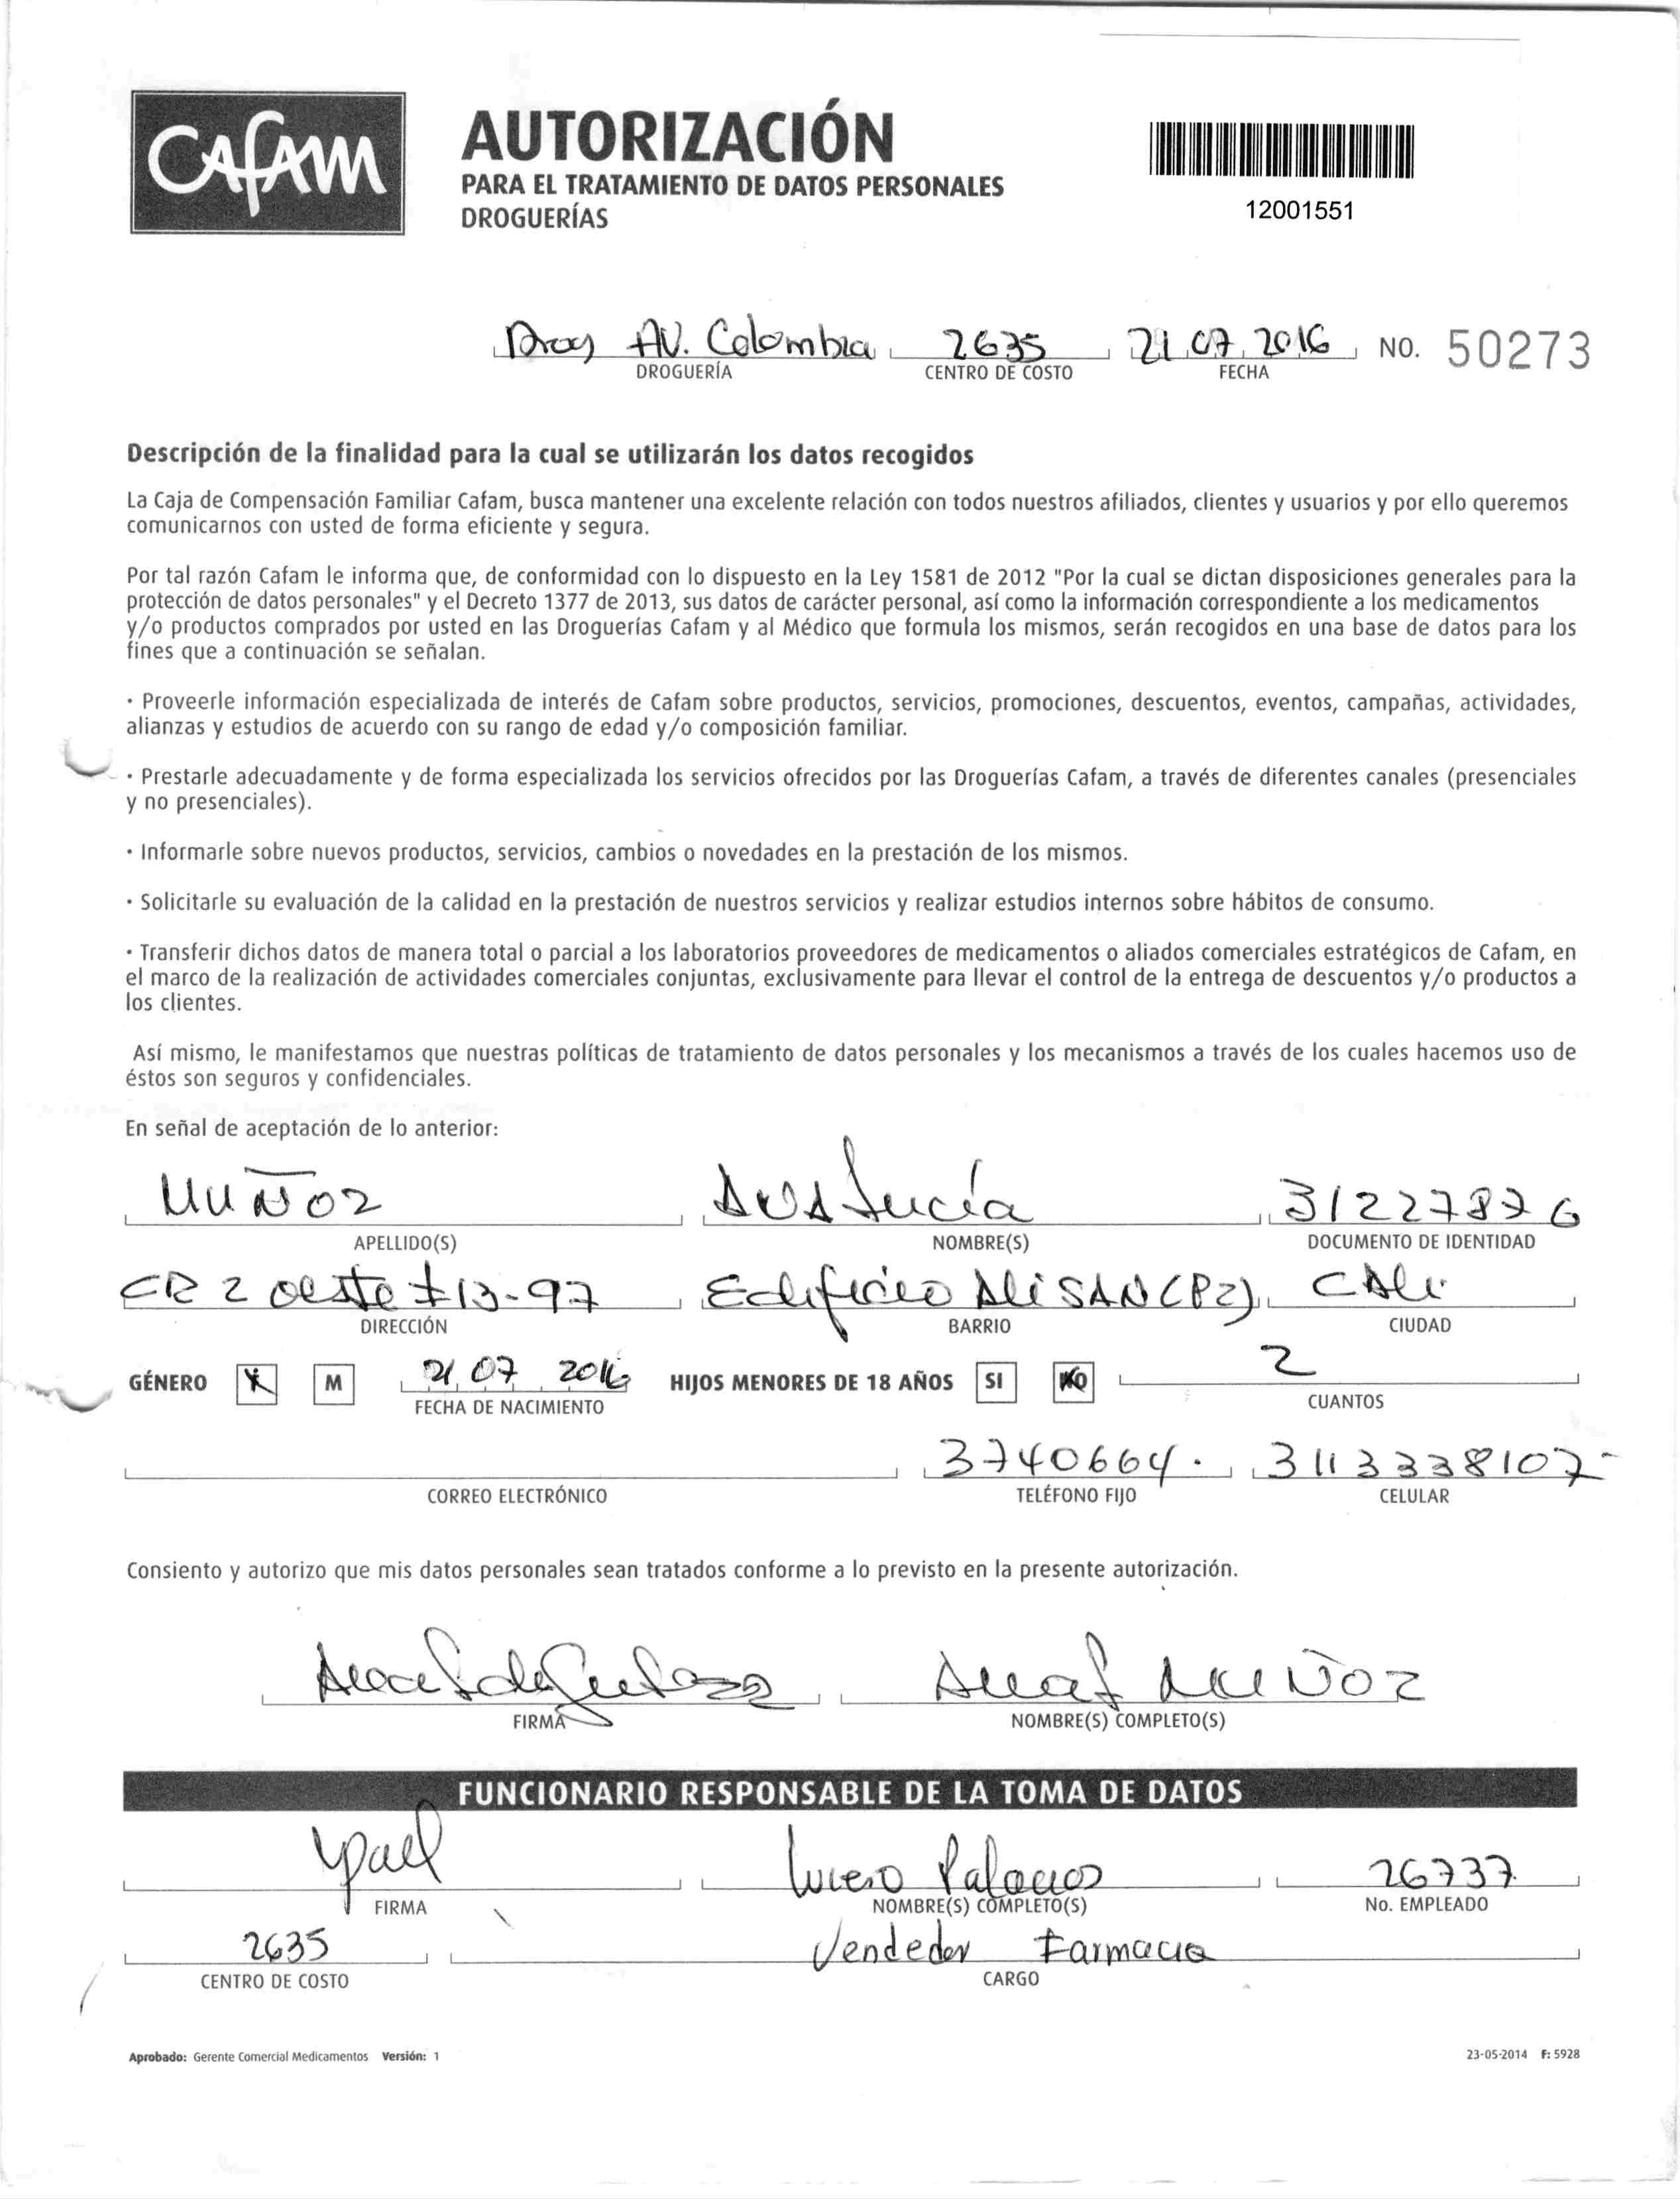 Cafam
AUTORIZACIÓN
PARA EL TRATAMIENTO DE DATOS PERSONALES
DROGUERÍAS
12001551
Drog AV. Colombia 2635 21 07 2016 NO. 50273
DROGUERÍA CENTRO DE COSTO FECHA
Descripción de la finalidad para la cual se utilizarán los datos recogidos
La Caja de Compensación Familiar Cafam, busca mantener una excelente relación con todos nuestros afiliados, clientes y usuarios y por ello queremos
comunicarnos con usted de forma eficiente y segura.
Por tal razón Cafam le informa que, de conformidad con lo dispuesto en la Ley 1581 de 2012 "Por la cual se dictan disposiciones generales para la
protección de datos personales" y el Decreto 1377 de 2013, sus datos de carácter personal, así como la información correspondiente a los medicamentos
y/o productos comprados por usted en las Droguerías Cafam y al Médico que formula los mismos, serán recogidos en una base de datos para los
fines que a continuación se señalan.
· Proveerle información especializada de interés de Cafam sobre productos, servicios, promociones, descuentos, eventos, campañas, actividades,
alianzas y estudios de acuerdo con su rango de edad y/o composición familiar.
· Prestarle adecuadamente y de forma especializada los servicios ofrecidos por las Droguerías Cafam, a través de diferentes canales (presenciales
y no presenciales).
· Informarle sobre nuevos productos, servicios, cambios o novedades en la prestación de los mismos.
· Solicitarle su evaluación de la calidad en la prestación de nuestros servicios y realizar estudios internos sobre hábitos de consumo.
· Transferir dichos datos de manera total o parcial a los laboratorios proveedores de medicamentos o aliados comerciales estratégicos de Cafam, en
el marco de la realización de actividades comerciales conjuntas, exclusivamente para llevar el control de la entrega de descuentos y/o productos a
los clientes.
Así mismo, le manifestamos que nuestras políticas de tratamiento de datos personales y los mecanismos a través de los cuales hacemos uso de
éstos son seguros y confidenciales.
En señal de aceptación de lo anterior:
MUÑOZ ANA Lucía 31227876
APELLIDO(S) NOMBRE(S) DOCUMENTO DE IDENTIDAD
CR 2 oeste #13-97 Edificio AliSAN (P2) CAli
DIRECCIÓN BARRIO CIUDAD
GÉNERO X M 21 07 2016 HIJOS MENORES DE 18 AÑOS SI NO 2
FECHA DE NACIMIENTO CUANTOS
3740664. 3113338107-
CORREO ELECTRÓNICO TELÉFONO FIJO CELULAR
Consiento y autorizo que mis datos personales sean tratados conforme a lo previsto en la presente autorización.
Ana L MUÑOZ
FIRMA NOMBRE(S) COMPLETO(S)
FUNCIONARIO RESPONSABLE DE LA TOMA DE DATOS
Lucero Palacios 26737
FIRMA NOMBRE(S) COMPLETO(S) No. EMPLEADO
2635 Vendedor Farmacia
CENTRO DE COSTO CARGO
Aprobado: Gerente Comercial Medicamentos Versión: 1 23-05-2014 F: 5928